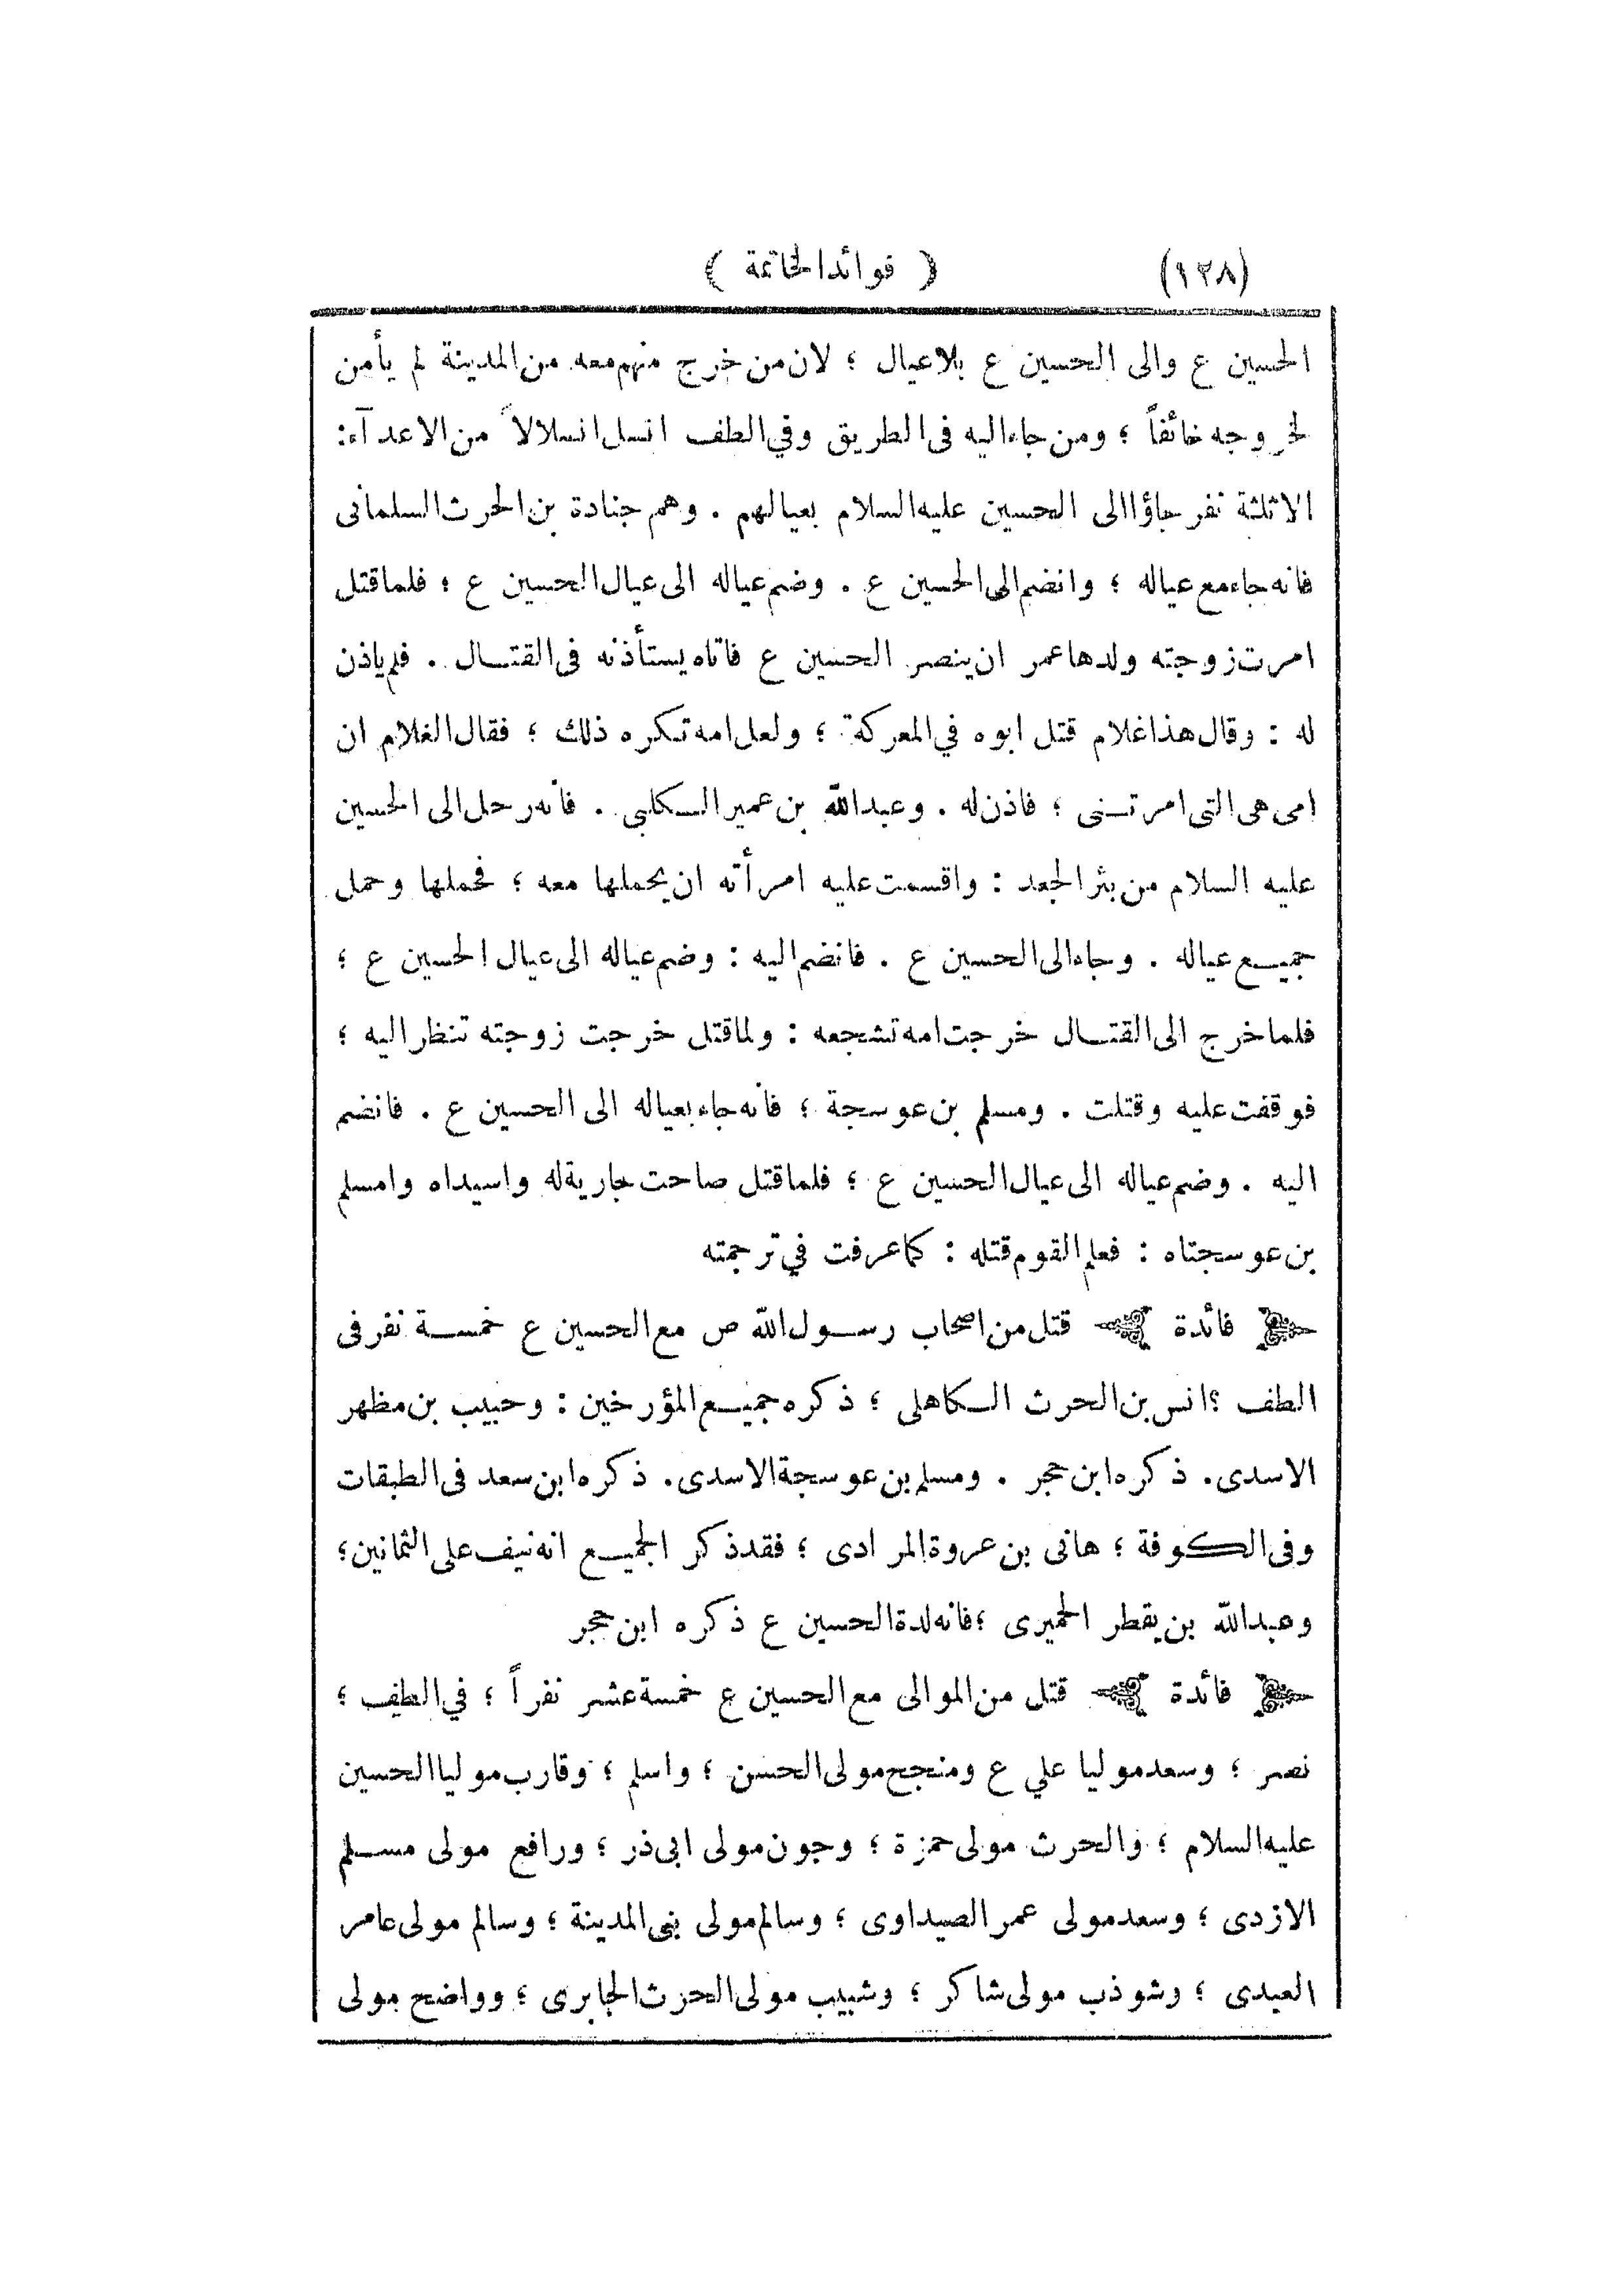 (١٢٨) ( فوائد الخاتمة )
الحسين ع والى الحسين ع بلا عيال ؛ لان من خرج منهم معه من المدينة لم يأمن
لخروجه خائفاً ؛ ومن جاء اليه فى الطريق وفي الطف انسل انسلالاً من الاعدآء :
الا ثلثة نفر جاؤا الى الحسين عليه السلام بعيالهم . وهم جنادة بن الحرث السلمانى
فانه جاء مع عياله ؛ وانضم الى الحسين ع . وضم عياله الى عيال الحسين ع ؛ فلما قتل
امرت زوجته ولدها عمر ان ينصر الحسين ع فاتاه يستأذنه فى القتال . فلم ياذن
له : وقال هذا غلام قتل ابوه في المعركة ؛ ولعل امه تكره ذلك ؛ فقال الغلام ان
امى هى التى امرتنى ؛ فاذن له . وعبد الله بن عمير الكلبي . فانه رحل الى الحسين
عليه السلام من بئر الجعد : واقسمت عليه امرأته ان يحملها معه ؛ فحملها وحمل
جميع عياله . وجاء الى الحسين ع . فانضم اليه : وضم عياله الى عيال الحسين ع ؛
فلما خرج الى القتال خرجت امه تشجعه : ولما قتل خرجت زوجته تنظر اليه ؛
فوقفت عليه وقتلت . ومسلم بن عوسجة ؛ فانه جاء بعياله الى الحسين ع . فانضم
اليه . وضم عياله الى عيال الحسين ع ؛ فلما قتل صاحت جارية له واسيداه وامسلم
بن عوسجتاه : فعلم القوم قتله : كما عرفت في ترجمته
فائدة قتل من اصحاب رسول الله ص مع الحسين ع خمسة نفر فى
الطف ؟ انس بن الحرث الكاهلى ؛ ذكره جميع المؤرخين : وحبيب بن مظهر
الاسدى . ذكره ابن حجر . ومسلم بن عوسجة الاسدى . ذكره ابن سعد فى الطبقات
وفى الكوفة ؛ هانى بن عروة المرادى ؛ فقد ذكر الجميع انه نيف على الثمانين ؛
وعبد الله بن يقطر الحميرى ؛ فانه لدة الحسين ع ذكره ابن حجر
فائدة قتل من الموالى مع الحسين ع خمسة عشر نفراً ؛ في الطف ؛
نصر ؛ وسعد موليا علي ع ومنجح مولى الحسن ؛ واسلم ؛ وقارب موليا الحسين
عليه السلام ؛ والحرث مولى حمزة ؛ وجون مولى ابى ذر ؛ ورافع مولى مسلم
الازدى ؛ وسعد مولى عمر الصيداوى ؛ وسالم مولى بنى المدينة ؛ وسالم مولى عامر
العبدى ؛ وشوذب مولى شاكر ؛ وشبيب مولى الحرث الجابرى ؛ وواضح مولى